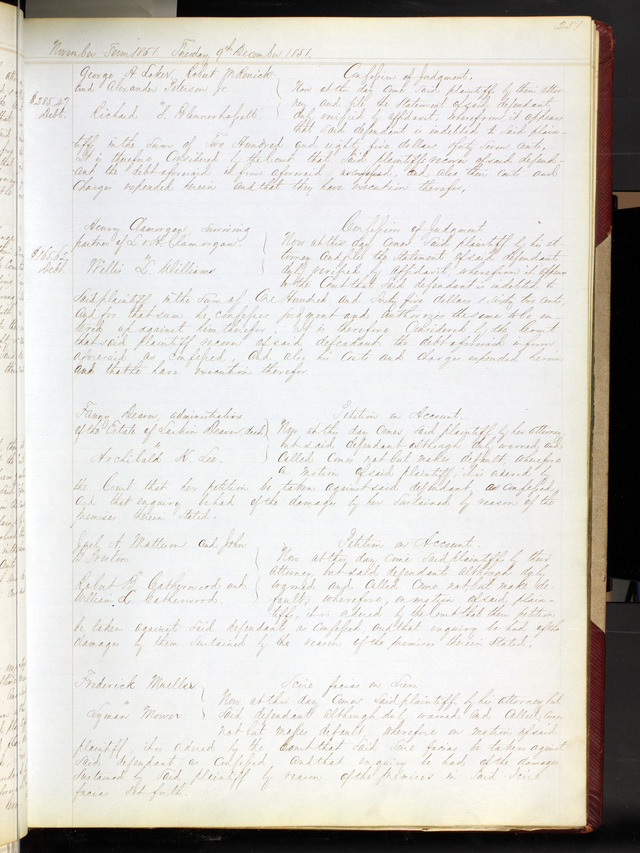 November Term 1851. Tuesday 9th December 1851.
George A. Laker, Robert McKenick
and Alexander Peterson Jr
Richard S. Blennerhassett
$285.47
Debt.
Confession of Judgment.
Now at this day come said plaintiffs by their attor-
ney and file the statement of said defendant,
duly verified by affidavit, wherefrom it appears
that said defendant is indebted to said plain-
tiffs in the sum of Two Hundred and eighty five dollars & forty seven cents,
It is therefore Considered by the Court that said plaintiffs recover of said defend-
ant the debt aforesaid in form aforesaid and also their costs and
charges expended herein and that they have execution therefor.
Henry Clamorgan, surviving
partner of L & H Clamorgan
Willis L. Williams
Debt.
Confession of Judgment
Now at this day comes said plaintiff by his at-
torney and files the statement of said defendant
duly verified by affidavit, wherefrom it appears
to the Court that said defendant is indebted to
said plaintiff in the sum of One Hundred and sixty five dollars & sixty two cents,
and for that sum he confesses judgment and authorizes the same to be en-
tered up against him therefor. It is therefore Considered by the Court
that said plaintiff recover of said defendant the debt aforesaid in form
aforesaid as confessed, and also his costs and charges expended herein
and that he have execution therefor.
Fanny Dearn, administratrix
of the Estate of Larkin Dearn, decd.
Archibald K. Lee.
Petition on Account.
Now at this day comes said plaintiff by her attorney
but said defendant although duly warned, and
called comes not but makes default, wherefore
on motion of said plaintiff, it is ordered by
the Court that her petition be taken against said defendant, as confessed,
and that enquiry be had of the damages by her sustained by reason of the
premises therein stated.
A. Matteson and John
Robert B. Catherwood and
William L. Catherwood.
Petition on Account.
Now at this day, come said plaintiffs by their
attorney, but said defendants although duly
warned and called come not but make de-
fault; wherefore, on motion of said plain-
tiffs, it is ordered by the Court that their petition
be taken against said defendants as confessed and that enquiry be had of the
damages by them sustained by the reason of the premises therein stated.
Frederick Mueller
Lyman Mower
Scire facias on Lien.
Now at this day comes said plaintiff by his attorney but
said defendant although duly warned and called, comes
not but makes default, wherefore, on motion of said
plaintiff, it is ordered by the Court that said Scire facias be taken against
said defendant as confessed and that enquiry be had of the damages
sustained by said plaintiff by reason of the premises in said Scire
facias set forth.